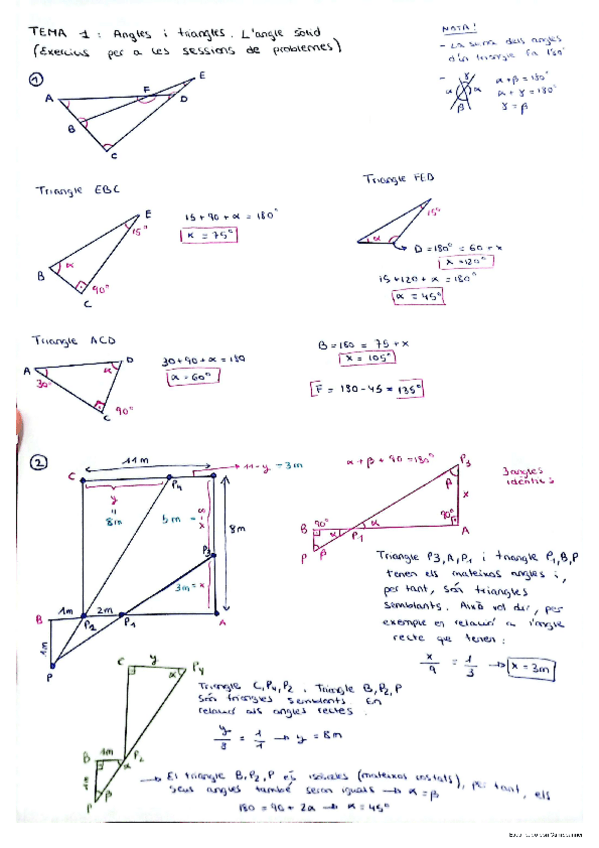 TEMA 1: Angles i triangles. L'angle sòlid
(Exercicis per a les sessions de problemes)
NOTA!
- La suma dels angles
d'un triangle fa 180°
- α + β = 180°
α + γ = 180°
γ = β
γ
α α
β
1
A B C D E F
Triangle EBC
E
15°
B α
90°
C
15 + 90 + α = 180°
α = 75°
Triangle FED
15°
α
D = 180° = 60 + x
x = 120°
15 + 120 + α = 180°
α = 45°
Triangle ACD
A D
30° α
C 90°
30 + 90 + α = 180
α = 60°
B = 180 = 75 + x
x = 105°
F = 180 - 45 = 135°
2
11m
11 - y = 3m
C P4
y
=
8m
5m = 8-x
8m
P3
3m = x
1m 2m
B P2 P1 A
1m
P
α + β + 90 = 180°
P3
β
x
3 angles
idèntics
B 90° α α 90° A
P1
P β
Triangle P3, A, P1 i triangle P1, B, P
tenen els mateixos angles i,
per tant, són triangles
semblants. Això vol dir, per
exemple en relació a l'angle
recte que tenen:
x/9 = 1/3 → x = 3m
C y P4
α
Triangle C, P4, P2 i Triangle B, P2, P
són triangles semblants. En
relació als angles rectes.
y/8 = 1/1 → y = 8m
B 1m P2
α
β
P
→ El triangle B, P2, P és isòsceles (mateixos costats), per tant, els
seus angles també seran iguals → α = β
180 = 90 + 2α → α = 45°